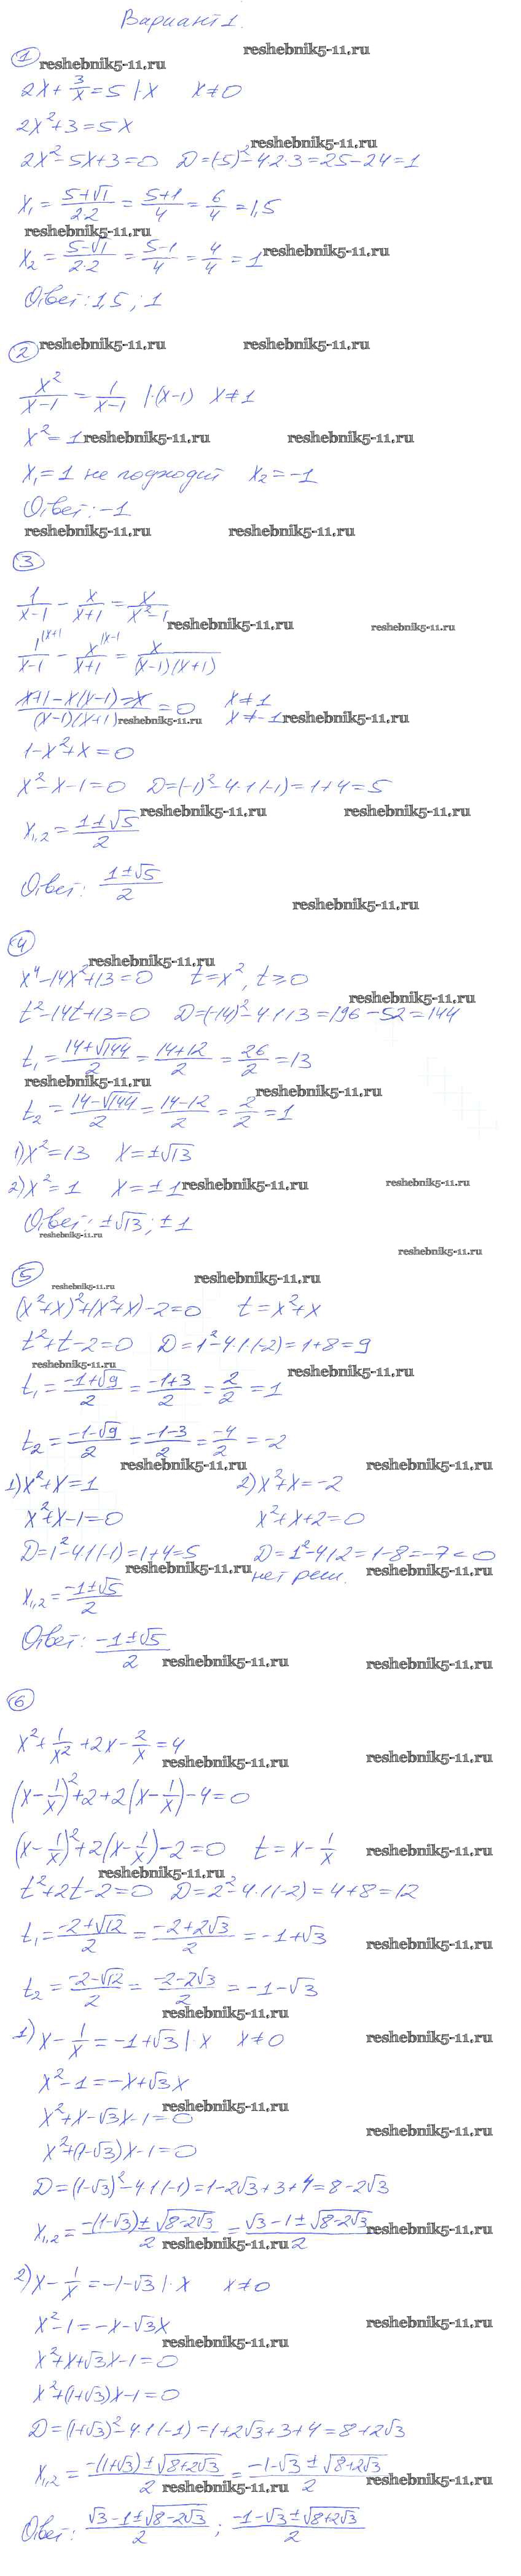 Вариант 1.
reshebnik5-11.ru
① reshebnik5-11.ru
2x + 3/x = 5 |·x x ≠ 0
2x² + 3 = 5x
reshebnik5-11.ru
2x² - 5x + 3 = 0 D = (-5)² - 4·2·3 = 25 - 24 = 1
x₁ = (5+√1)/(2·2) = (5+1)/4 = 6/4 = 1,5
reshebnik5-11.ru
x₂ = (5-√1)/(2·2) = (5-1)/4 = 4/4 = 1 reshebnik5-11.ru
Ответ: 1,5 ; 1
② reshebnik5-11.ru reshebnik5-11.ru
x²/(x-1) = 1/(x-1) |·(x-1) x ≠ 1
x² = 1 reshebnik5-11.ru reshebnik5-11.ru
x₁ = 1 не подходит x₂ = -1
Ответ: -1
reshebnik5-11.ru reshebnik5-11.ru
③
1/(x-1) - x/(x+1) = x/(x²-1)
reshebnik5-11.ru reshebnik5-11.ru
1^(|x+1)/(x-1) - x^(|x-1)/(x+1) = x/((x-1)(x+1))
(x+1-x(x-1)-x)/((x-1)(x+1)) = 0 x ≠ 1
reshebnik5-11.ru x ≠ -1 reshebnik5-11.ru
1 - x² + x = 0
x² - x - 1 = 0 D = (-1)² - 4·1·(-1) = 1 + 4 = 5
reshebnik5-11.ru reshebnik5-11.ru
x₁,₂ = (1±√5)/2
Ответ: (1±√5)/2
reshebnik5-11.ru
④
reshebnik5-11.ru
x⁴ - 14x² + 13 = 0 t = x², t ≥ 0
reshebnik5-11.ru
t² - 14t + 13 = 0 D = (-14)² - 4·1·13 = 196 - 52 = 144
t₁ = (14+√144)/2 = (14+12)/2 = 26/2 = 13
reshebnik5-11.ru reshebnik5-11.ru
t₂ = (14-√144)/2 = (14-12)/2 = 2/2 = 1
1) x² = 13 x = ±√13
2) x² = 1 x = ±1 reshebnik5-11.ru reshebnik5-11.ru
Ответ: ±√13 ; ±1
reshebnik5-11.ru
reshebnik5-11.ru
⑤ reshebnik5-11.ru reshebnik5-11.ru
(x²+x)² + (x²+x) - 2 = 0 t = x² + x
t² + t - 2 = 0 D = 1² - 4·1·(-2) = 1 + 8 = 9
reshebnik5-11.ru reshebnik5-11.ru
t₁ = (-1+√9)/2 = (-1+3)/2 = 2/2 = 1
t₂ = (-1-√9)/2 = (-1-3)/2 = -4/2 = -2
reshebnik5-11.ru reshebnik5-11.ru
1) x² + x = 1 2) x² + x = -2
x² + x - 1 = 0 x² + x + 2 = 0
D = 1² - 4·1·(-1) = 1 + 4 = 5 D = 1² - 4·1·2 = 1 - 8 = -7 < 0
reshebnik5-11.ru нет реш. reshebnik5-11.ru
x₁,₂ = (-1±√5)/2
Ответ: (-1±√5)/2
reshebnik5-11.ru reshebnik5-11.ru
⑥
x² + 1/x² + 2x - 2/x = 4
reshebnik5-11.ru reshebnik5-11.ru
(x - 1/x)² + 2 + 2(x - 1/x) - 4 = 0
(x - 1/x)² + 2(x - 1/x) - 2 = 0 t = x - 1/x reshebnik5-11.ru
reshebnik5-11.ru
t² + 2t - 2 = 0 D = 2² - 4·1·(-2) = 4 + 8 = 12
t₁ = (-2+√12)/2 = (-2+2√3)/2 = -1+√3 reshebnik5-11.ru
t₂ = (-2-√12)/2 = (-2-2√3)/2 = -1-√3
reshebnik5-11.ru
1) x - 1/x = -1+√3 |·x x ≠ 0 reshebnik5-11.ru
x² - 1 = -x + √3x
reshebnik5-11.ru
x² + x - √3x - 1 = 0
reshebnik5-11.ru
x² + (1-√3)x - 1 = 0
D = (1-√3)² - 4·1·(-1) = 1 - 2√3 + 3 + 4 = 8 - 2√3
x₁,₂ = (-(1-√3)±√(8-2√3))/2 = (√3-1±√(8-2√3))/2 reshebnik5-11.ru
reshebnik5-11.ru
2) x - 1/x = -1-√3 |·x x ≠ 0
x² - 1 = -x - √3x reshebnik5-11.ru
reshebnik5-11.ru
x² + x + √3x - 1 = 0
x² + (1+√3)x - 1 = 0
D = (1+√3)² - 4·1·(-1) = 1 + 2√3 + 3 + 4 = 8 + 2√3
x₁,₂ = (-(1+√3)±√(8+2√3))/2 = (-1-√3±√(8+2√3))/2 reshebnik5-11.ru
reshebnik5-11.ru
Ответ: (√3-1±√(8-2√3))/2 ; (-1-√3±√(8+2√3))/2